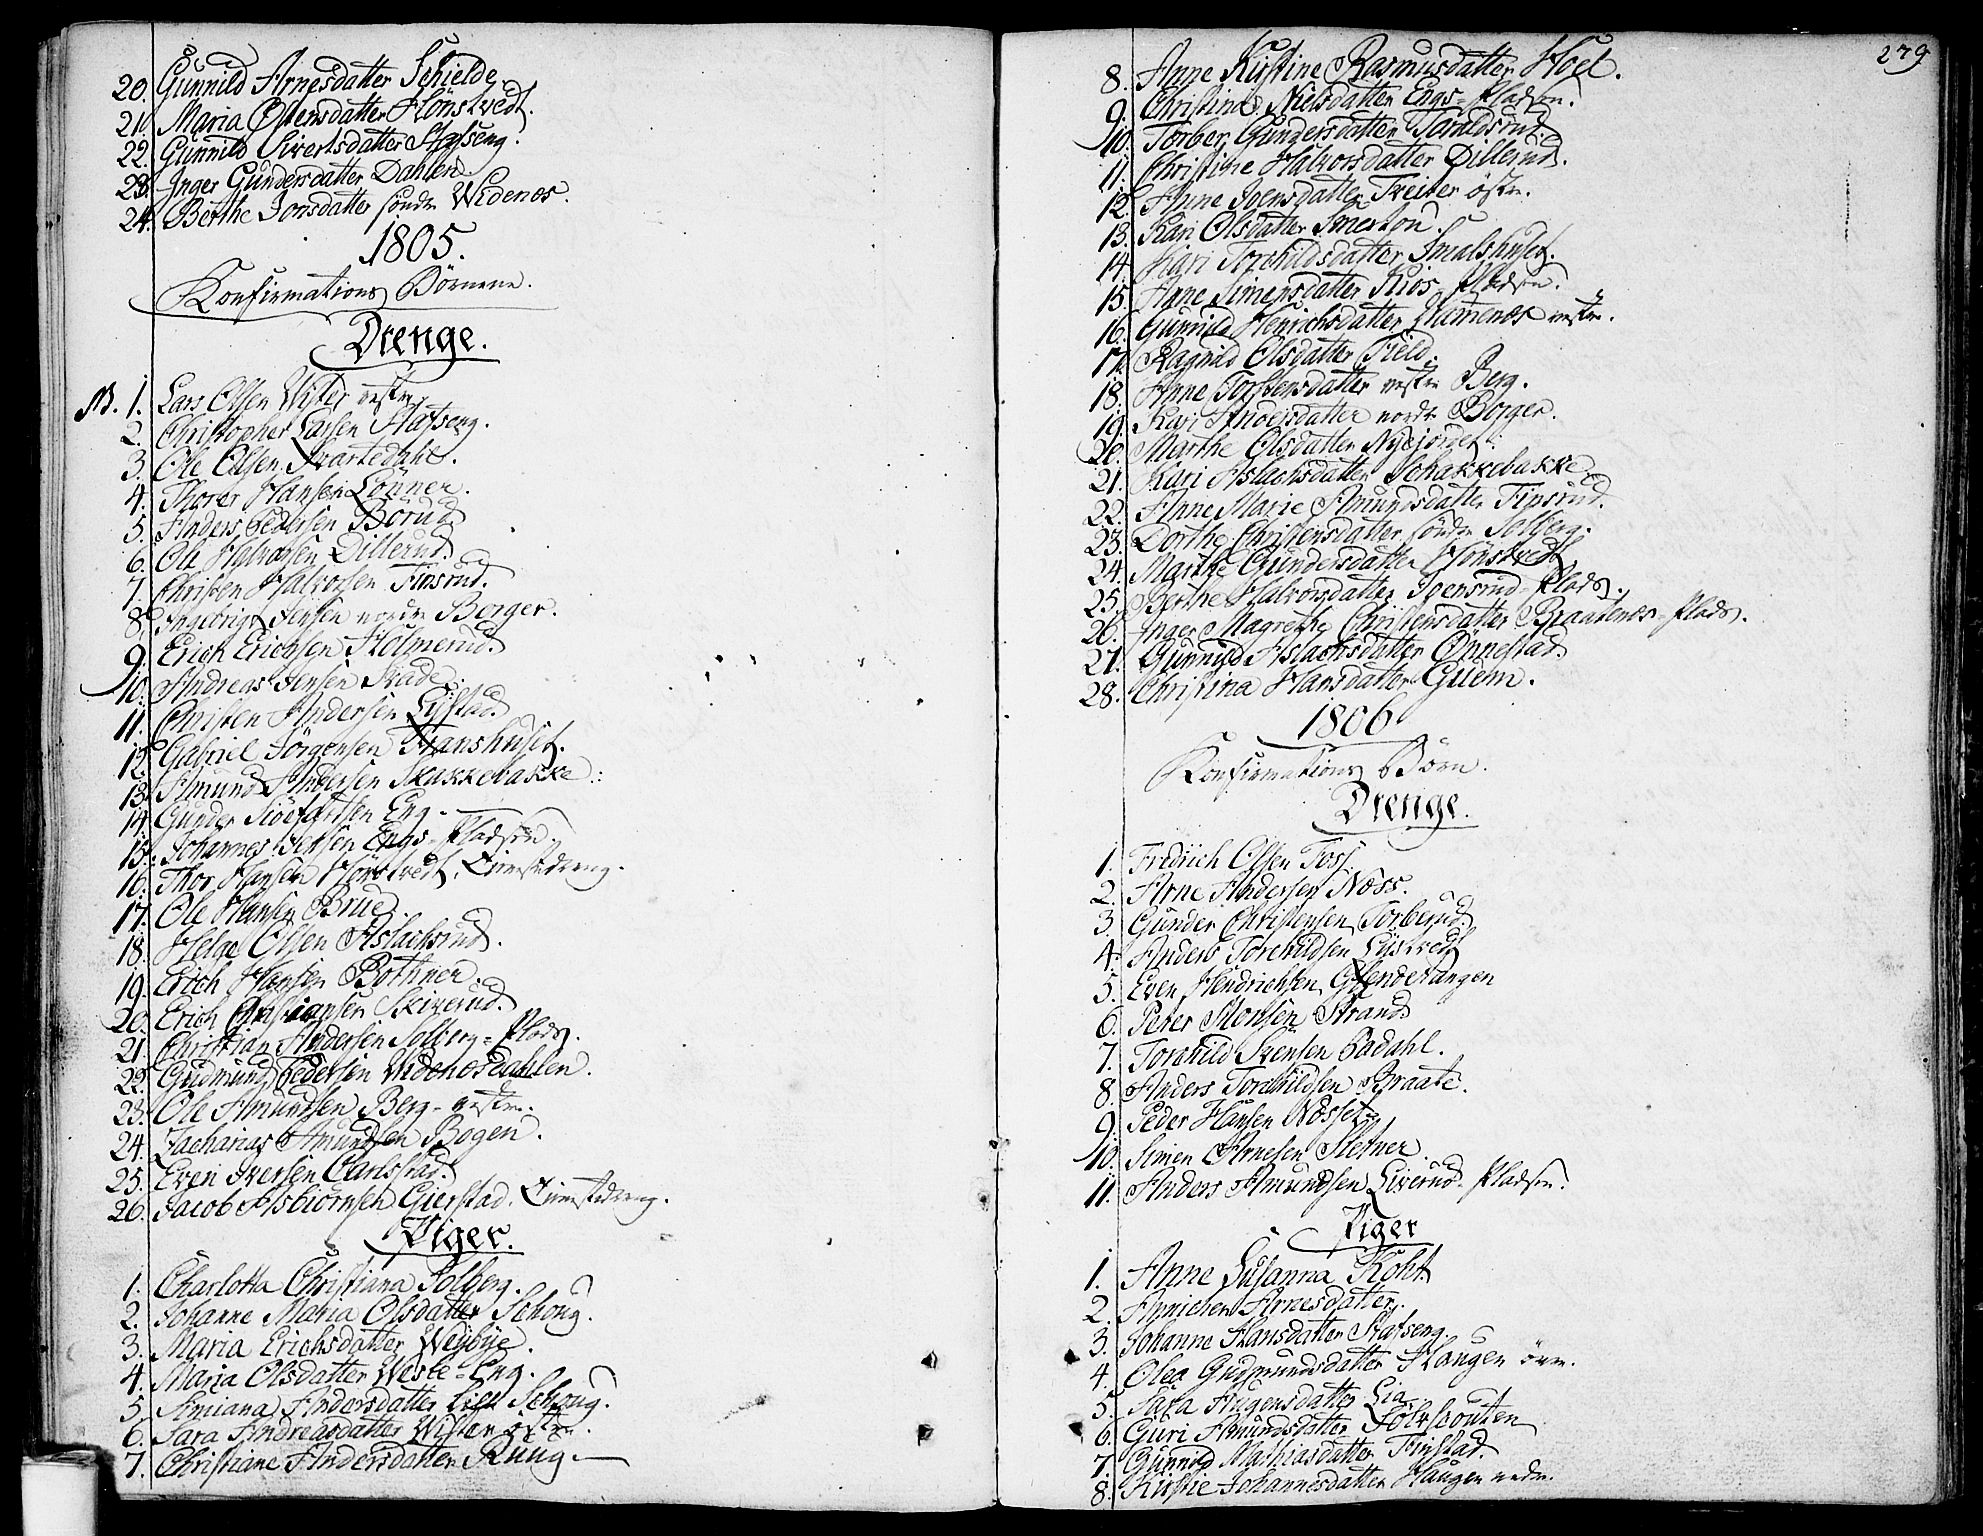 20. Gunnild Arnesdatter Schielde
21. Maria Olsensdatter Hönstvedt.
22. Gunnild Sivertsdatter Stafseng.
23. Inger Gundersdatter Dahlen
24. Berthe Jonsdatter söndr Widenæs.
1805.
Konfirmations Börnene.
Drenge.
N. 1. Lars Olsen Wister vestre
2. Christopher Larsen Stafseng.
3. Ole Olsen Svartedahl.
4. Thorer Hansen Lönner.
5. Anders Pedersen Borud
6. Ole Halvorsen Dillerud
7. Christen Halvorsen Finsrud.
8. Ingebrigt Jensen nordre Borger.
9. Erich Erichsen Holmerud.
10. Andreas Jensen Skade.
11. Christen Andersen Lystad.
12. Gabriel Jörgensen Franshuset.
13. Amund Andersen Skakkebakke.
14. Gunder Siövertsen Eng.
15. Johannes Jensen Engs-Pladsen.
16. Thor Hansen Hönstvedt,
17. Ole Hansen Brued
18. Helge Olsen Aslachsrud.
19. Erich Hansen Bothner.
20. Erich Christiansen Skiverud.
21. Christian Andersen Solberg-Plads.
22. Gudmund Pedersen Widenæsdahlen.
23. Ole Amundsen Berg vestre.
24. Zacharias Amundsen Bogen.
25. Even Iversen Carlstad.
26. Jacob Asbiörnsen Gierstad.
Piger.
1. Charlotta Christiana Solberg.
2. Johanne Maria Olsdatter Schoug.
3. Maria Erichsdatter Weybye.
4. Maria Olsdatter Weste-Eng.
5. Simiana Andersdatter Lille Schoug.
6. Sara Andreasdatter Wister östre.
7. Christiane Andersdatter Ruug
279
8. Anne Kirstine Rasmusdatter Hoel.
9. Christina Nielsdatter Engs-Pladsen.
10. Torber Gundersdatter Taraldsrud.
11. Christine Halvorsdatter Dillerud.
12. Anne Joensdatter Treiter östre.
13. Kari Olsdatter Smerton.
14. Kari Torchildsdatter Smalshuset.
15. Anne Simensdatter Kiös-Pladsen.
16. Gunnild Henrichsdatter Hamenæs vestre.
17. Ragnild Olsdatter Field.
18. Anne Torstensdatter vestre Berg.
19. Kari Andersdatter nordr Borger.
20. Marthe Olsdatter Nyejordet.
21. Kari Aslachsdatter Schakkebakke
22. Anne Marie Amundsdatter Finsrud.
23. Dorthe Christensdatter söndre Solberg.
24. Marthe Gundersdatter Hönstvedt
25. Berthe Halvorsdatter Joensrud-Plads.
26. Inger Magrethe Christensdatter Braatenæs-Plads.
27. Gunnild Aslachsdatter Önnestad.
28. Christina Hansdatter Guem.
1806
Konfirmations Börn.
Drenge.
1. Fredrich Olsen Foss
2. Arne Andersen Næss.
3. Gunder Christensen Torberud
4. Anders Torchildsen Lystvedt
5. Even Hendrichsen Glendetangen
6. Peter Monsen Strand
7. Torchild Svensen Badahl.
8. Anders Torchildsen Braate.
9. Peder Hansen Næsset
10. Simen Arnesen Sletner
11. Anders Amundsen Liverud-Pladsen.
Piger
1. Anne Susanna Koht
2. Annichen Arnesdatter.
3. Johanne Hansdatter Stafseng.
4. Olea Gudmundsdatter Haugen övre.
5. Sara Haagensdatter Lia
6. Guri Amundsdatter
7. Gunnild Mathiasdatter Finstad.
8. Kirstie Johannesdatter Haugen nedre.